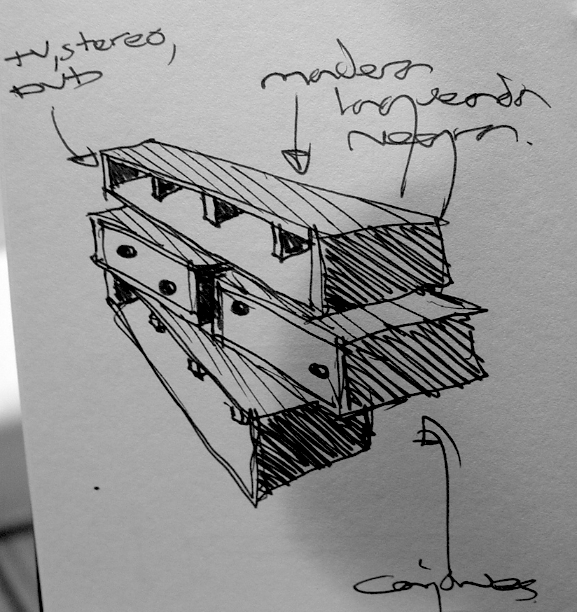 tv, stereo,
DVD
madera
laqueada
negra.
cajones